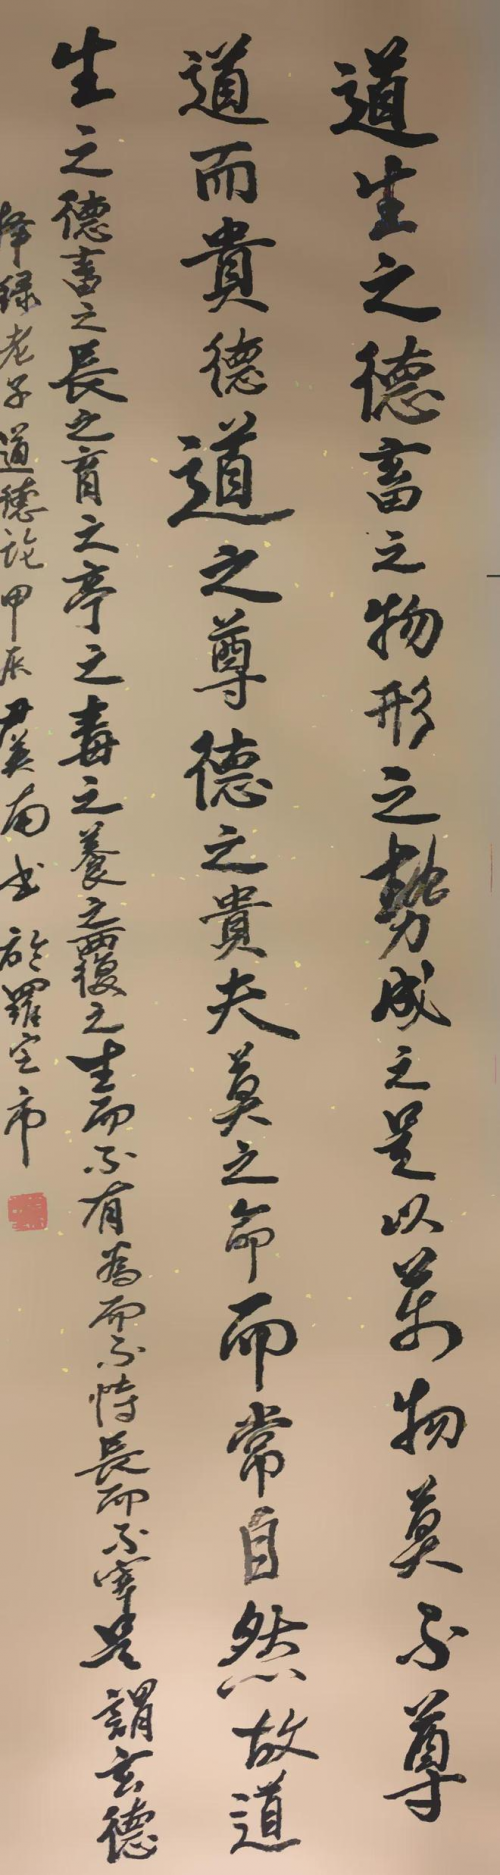 道生之德畜之物形之勢成之是以萬物莫不尊
道而貴德道之尊德之貴夫莫之命而常自然故道
生之德畜之長之育之亭之毒之養之覆之生而不有為而不恃長而不宰是謂玄德
擇録老子道德論甲辰尹美南书於羅定市